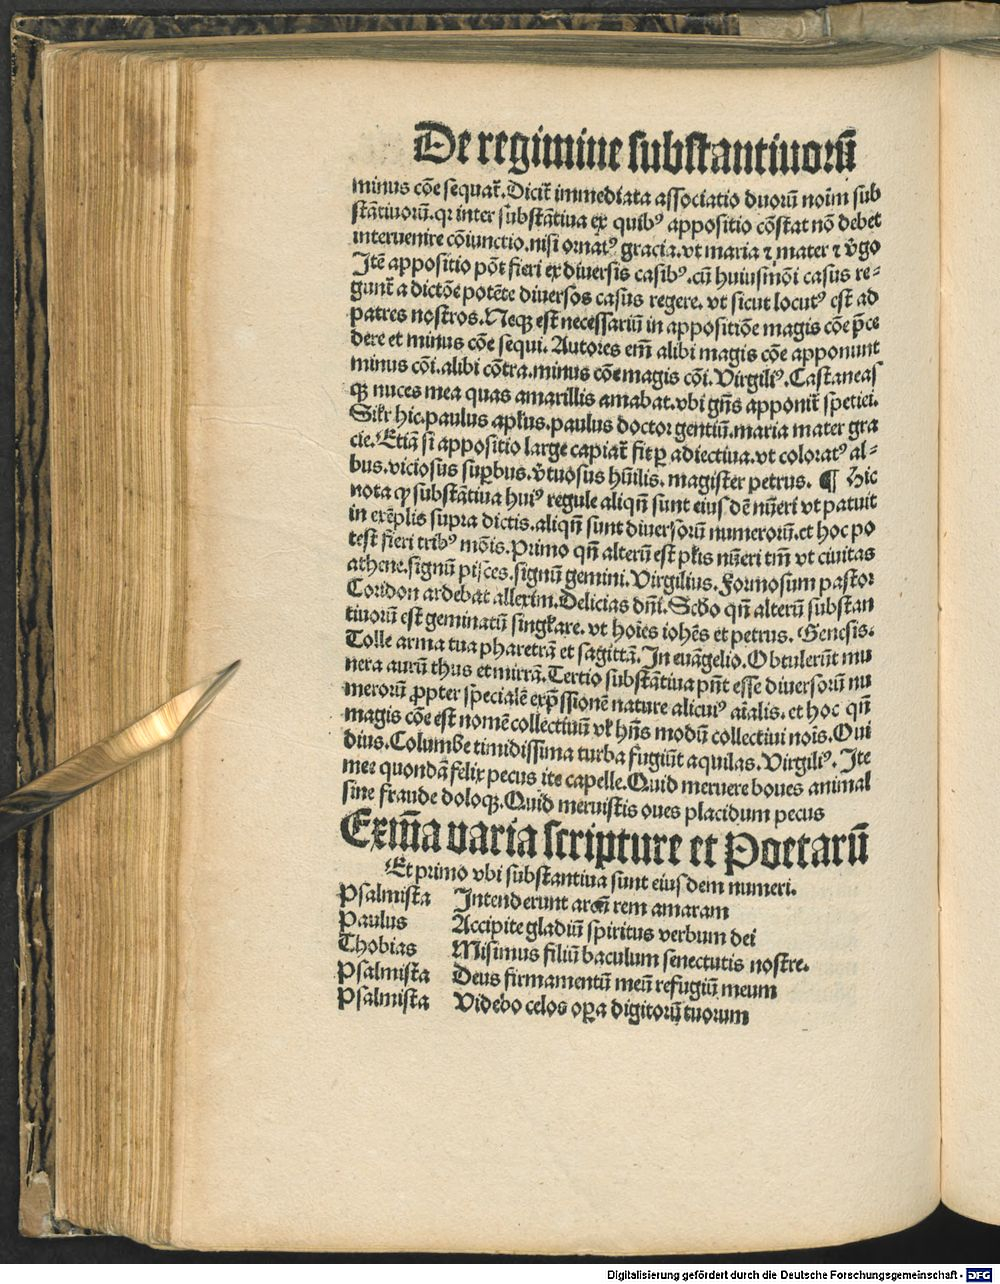 De regimine substantiuorū
minus cōe sequat̄. Dicit̄ immediata associatio duorū noīm sub
stātiuorū. qr inter substātiua ex quibꝰ appositio cōstat nō debet
interuenire cōiunctio. nisi ornatꝰ gracia. vt maria ⁊ mater ⁊ v̄go
Itē appositio pōt fieri ex diuersis casibꝰ. cū huiusmōi casus re⸗
gunt̄ a dictōe potēte diuersos casus regere. vt sicut locutꝰ est ad
patres nostros. Neqꝫ est necessariū in appositiōe magis cōe p̄ce
dere et minus cōe sequi. Autores em̄ alibi magis cōe apponunt
minus cōi. alibi cōtra. minus cōe magis cōi. Virgiliꝰ. Castaneas
qꝫ nuces mea quas amarillis amabat. vbi gn̄s apponit̄ spetiei.
Silr hic. paulus apl̄us. paulus doctor gentiū. maria mater gra
cie. Etiā si appositio large capiat̄ fit ꝑ adiectiua. vt coloratꝰ al⸗
bus. viciosus suꝑbus. v̄tuosus hūilis. magister petrus. ¶ Hic
nota ꝙ substātiua huiꝰ regule aliqn̄ sunt eius dē nūeri vt patuit
in exēplis supra dictis. aliqn̄ sunt diuersorū numerorū. et hoc po
test fieri tribꝰ mōis. Primo qn̄ alterū est pl̄is nūeri tm̄ vt ciuitas
athene. signū pisces. signū gemini. Virgilius. Formosum pastor
Coridon ardebat allexim. Delicias dn̄i. Scd̄o qn̄ alterū substan
tiuorū est geminatū singl̄are. vt hoīes ioh̄es et petrus. Genesis.
Tolle arma tua pharetrā et sagittā. In euāgelio. Obtulerūt mu
nera aurū thus et mirrā. Tertio substātiua pn̄t esse diuersorū nu
merorū ꝓpter specialē exp̄ssionē nature alicuiꝰ aīalis. et hoc qn̄
magis cōe est nomē collectiuū vl̄ hn̄s modū collectiui noīs. Oui
dius. Columbe timidissima turba fugiūt aquilas. Virgiliꝰ. Ite
mee quondā felix pecus ite capelle. Quid meruere boues animal
sine fraude doloqꝫ. Quid meruistis oues placidum pecus
Exm̄a varia scripture et Poetarū
Et primo vbi substantiua sunt eius dem numeri.
Psalmista Intenderunt arcū rem amaram
Paulus Accipite gladiū spiritus verbum dei
Thobias Misimus filiū baculum senectutis nostre.
Psalmista Deus firmamentū meū refugiū meum
Psalmista Videbo celos oꝑa digitorū tuorum
Digitalisierung gefördert durch die Deutsche Forschungsgemeinschaft - DFG